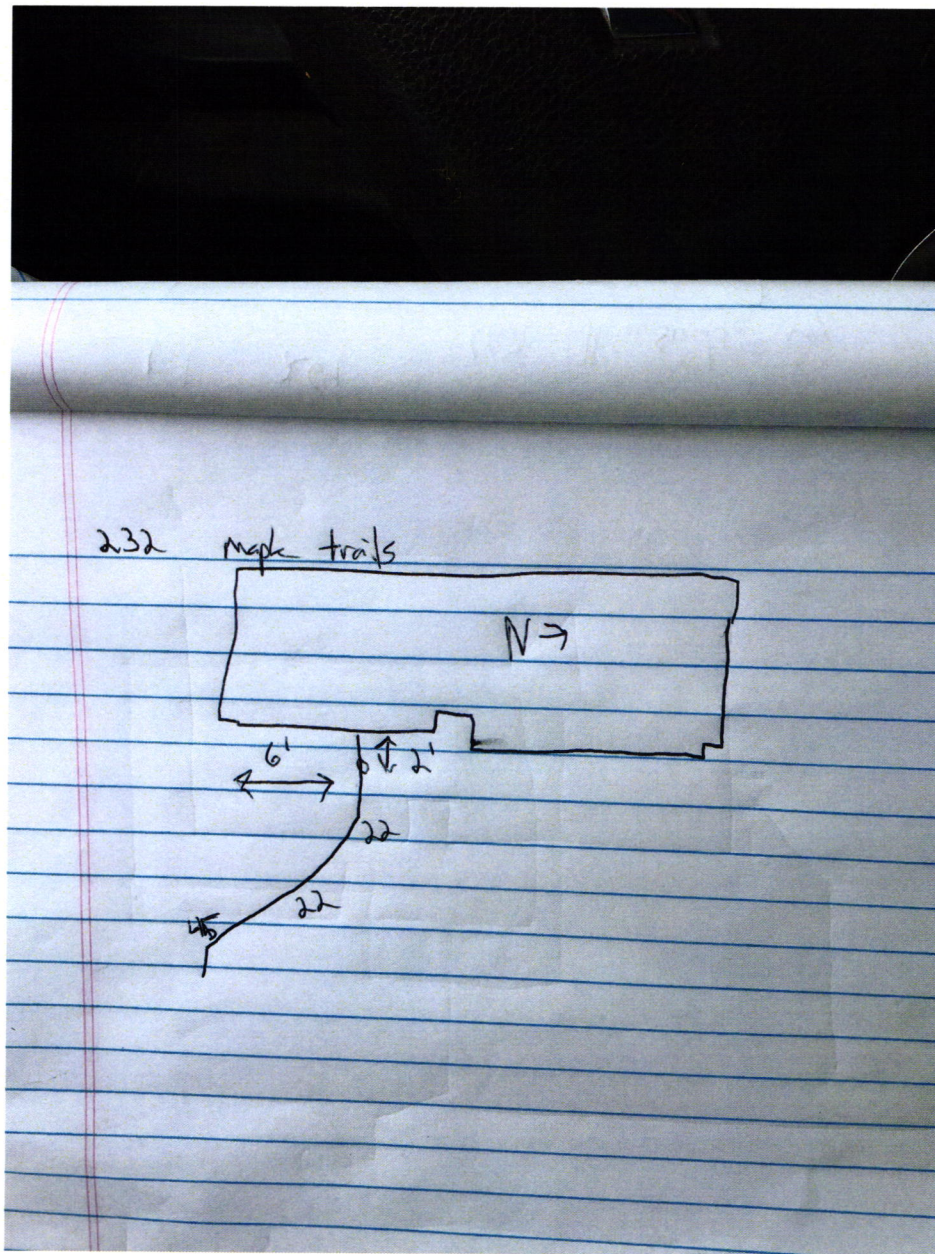 232 maple trails
N →
6' 2'
22
22
45